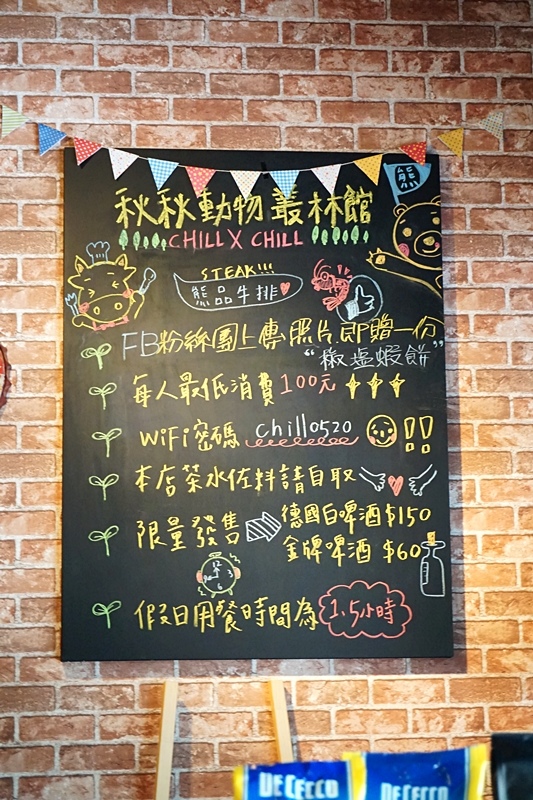 熊
秋秋動物叢林館
CHILL X CHILL
STEAK!!!
熊品牛排
FB粉絲團上傳照片即贈一份
“椒塩蝦餅”
每人最低消費100元
WiFi密碼 chill0520 !!
本店茶水佐料請自取
限量發售 德國白啤酒$150
金牌啤酒 $60
12 3 6 9
假日用餐時間為1.5小時
DE CECCO DE CECCO